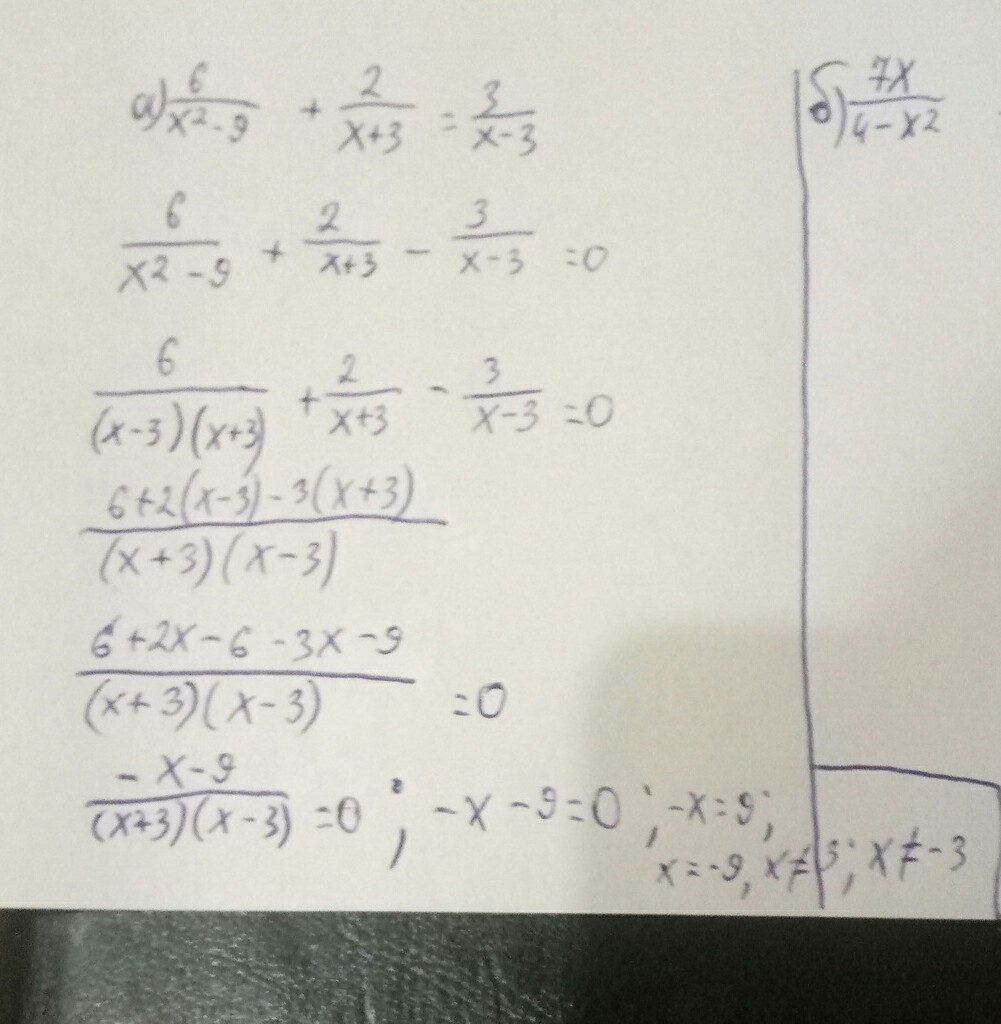 а) 6/(x²-9) + 2/(x+3) = 3/(x-3)
6/(x²-9) + 2/(x+3) - 3/(x-3) =0
6/((x-3)(x+3)) + 2/(x+3) - 3/(x-3) =0
(6+2(x-3)-3(x+3))/((x+3)(x-3))
(6+2x-6-3x-9)/((x+3)(x-3)) =0
(-x-9)/((x+3)(x-3)) =0 ; -x-9=0 ; -x=9;
x=-9, x≠3; x≠-3
б) 7x/(4-x²)